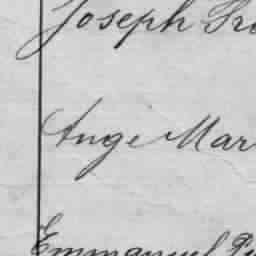 Joseph
Ange Mar
Emmanuel